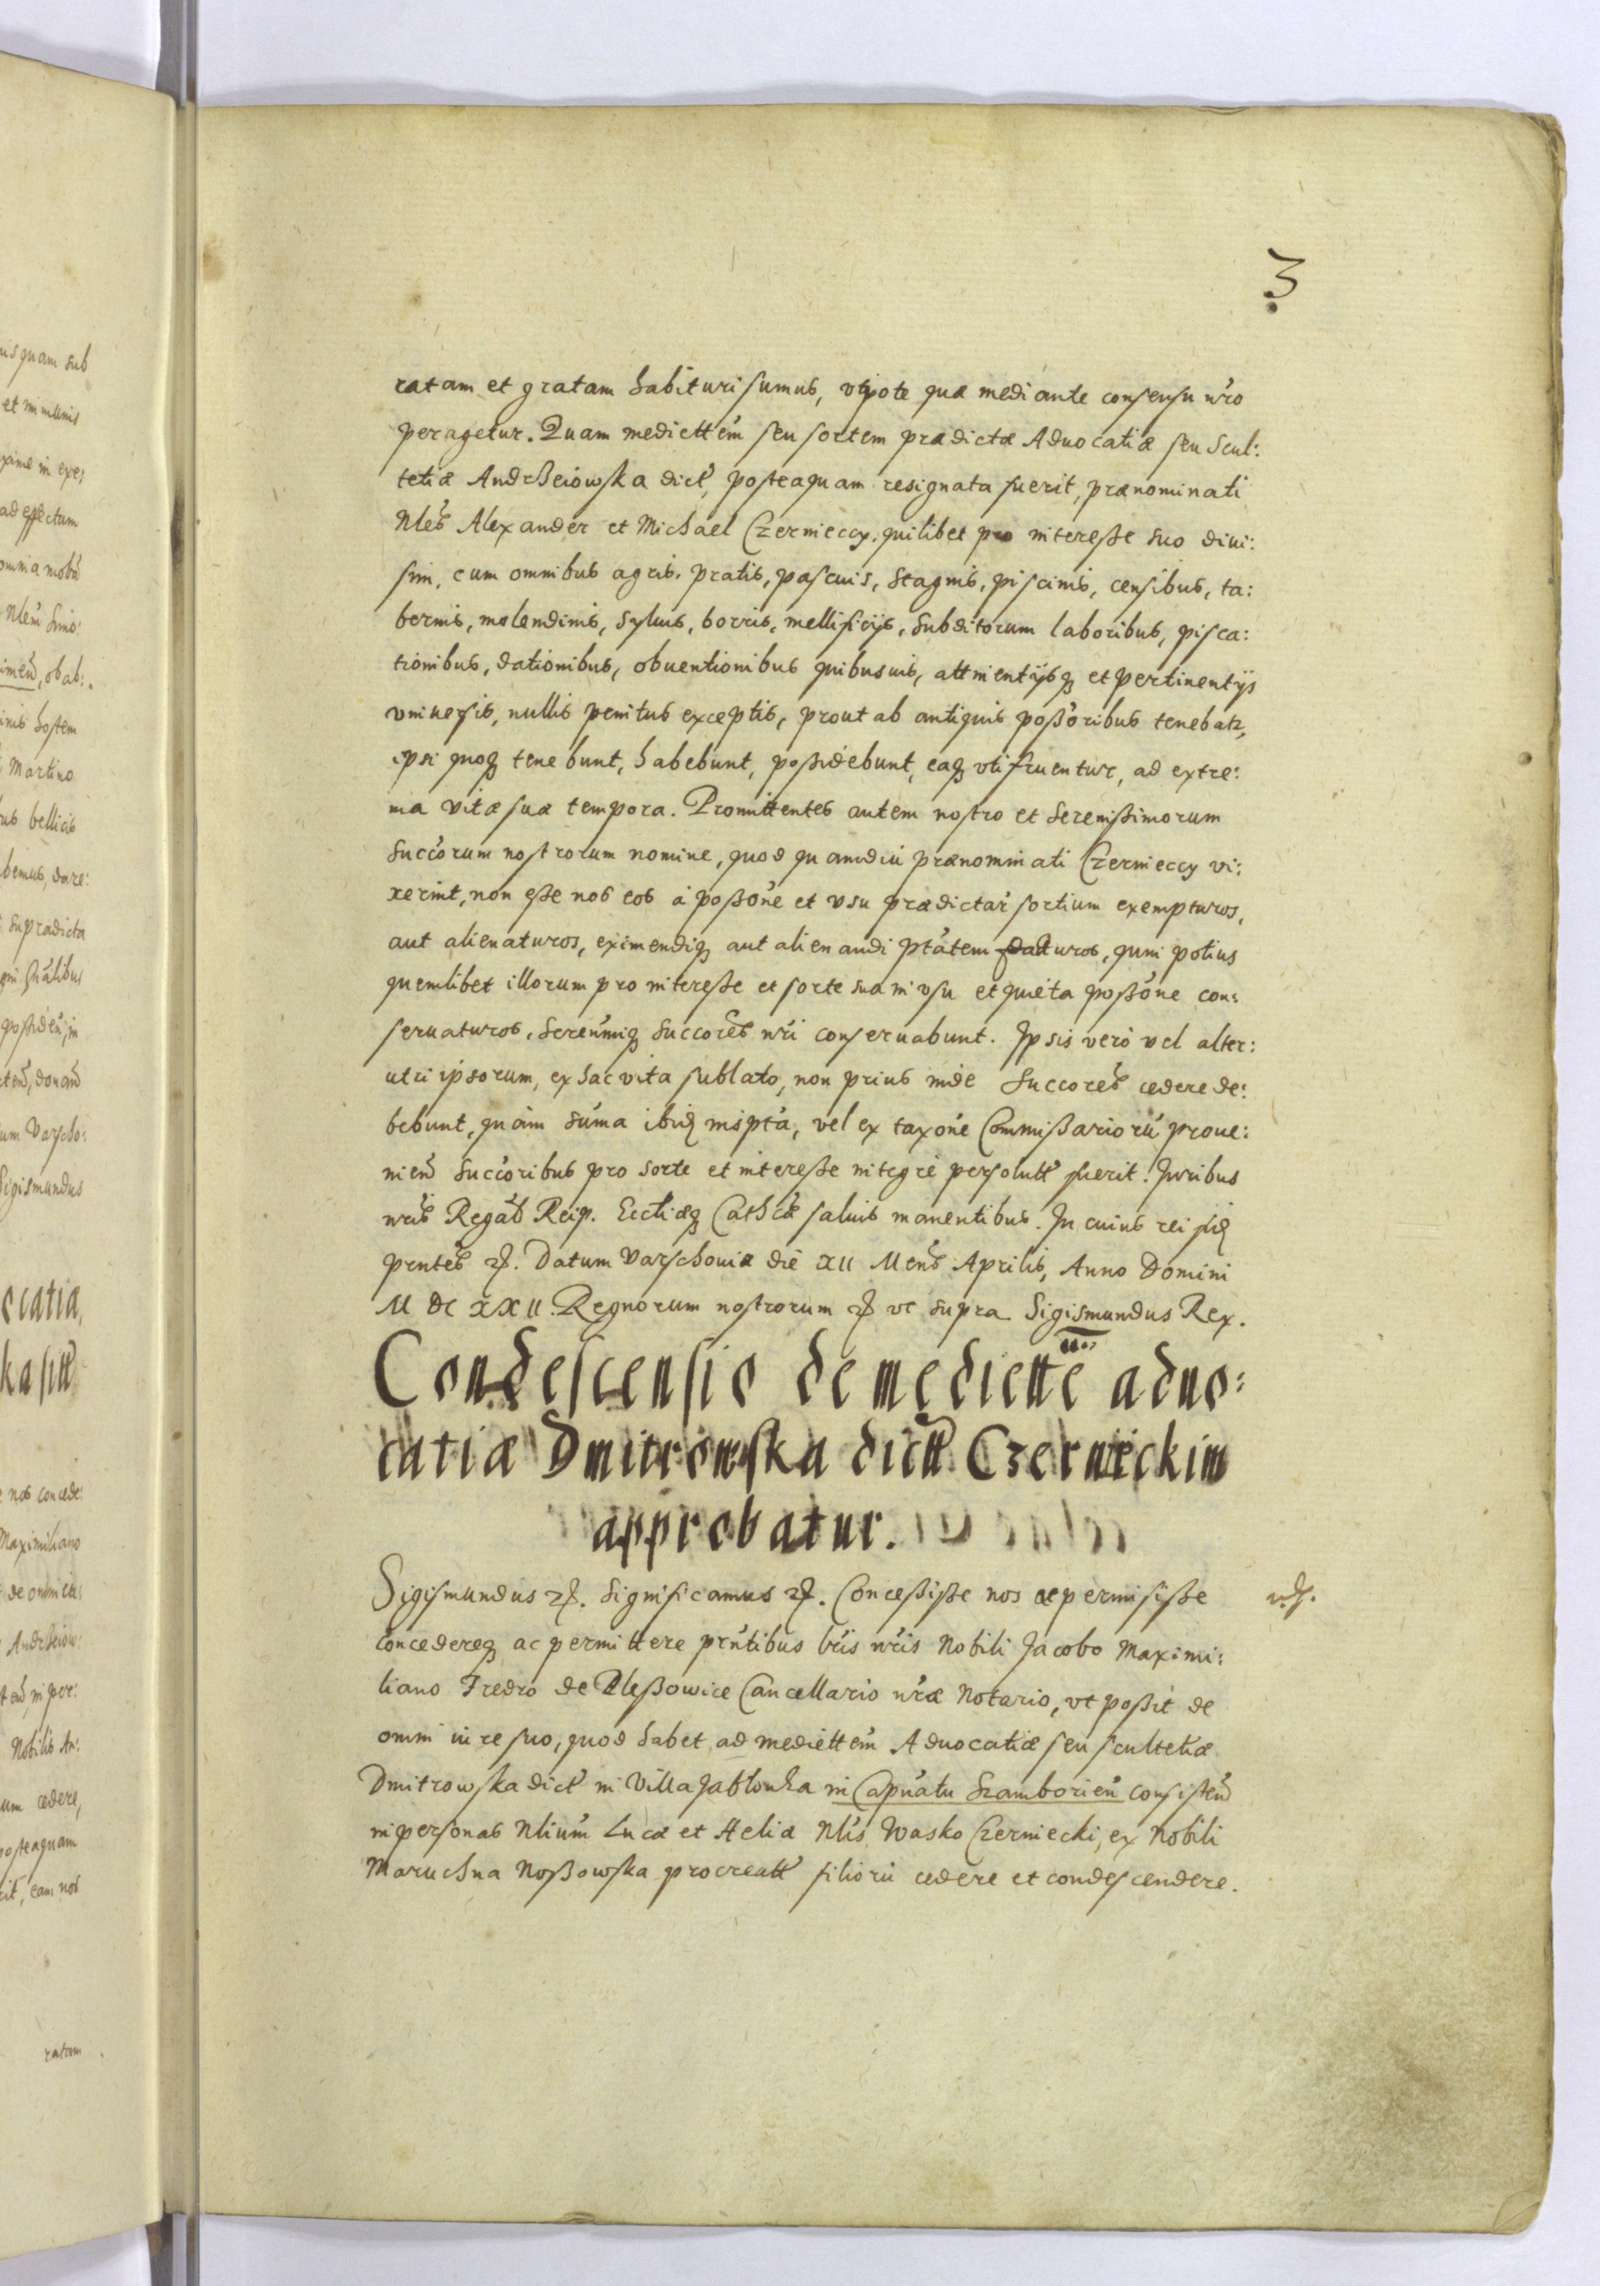 3
ratam et gratam habituri sumus, utpote quæ mediante consensu nr̃o
peragetur. Quam mediettem̃ seu sortem prædictæ Aduocatiæ seu Scul:
tetiæ Andrzeiowska dict', posteaquam resignata fuerit, prænominati
Nles̃ Alexander et Michael Czernieccy, quilibet pro interesse suo diui:
sim, cum omnibus agris, pratis, pascuis, stagnis, piscinis, censibus, ta:
bernis, molendinis, syluis, borris, mellificijs, subditorum laboribus, pisca:
tionibus, dationibus, obuentionibus quibusuis, attinentijsq et pertinentijs
vniuersis, nullis penitus exceptis, prout ab antiquis poss̃oribus tenebatr,
ipsi quoq tenebunt, habebunt, possidebunt, eaq vtifruentur, ad extre:
ma vitæ suæ tempora. Promittentes autem nostro et Serenissimorum
Succorum nostrorum nomine, quod quamdiu prænominati Czernieccy vi:
xerint, non esse nos eos à possõne et vsu prædictar̃ sortium exempturos,
aut alienaturos, eximendiq aut alienandi ptãtem daturos, quin potius
quemlibet illorum pro interesse et sorte sua in vsu et quieta possõne con:
seruaturos, Serenmiq Succores̃ nr̃i conseruabunt. Ipsis verò vel alter:
utri ipsorum, ex hac vita sublato, non prius inde Succores̃ cedere de:
bebunt, quàm sum̃a ibidq inspta, vel ex taxõne Commissariorũ proue:
nien̄ Succoribus pro sorte et interesse integrè persolutt' fuerit. Iuribus
nr̃is Regal̃ Reip. Eccliæq Cathcæ saluis manentibus. In cuius rei fidq
prntes̃ etc. Datum Varschouiæ die XII Mens̃ Aprilis, Anno Domini
M DC XXII. Regnorum nostrorum etc ut supra Sigismundus Rex.
Condescensio de mediettẽ aduo:
catiæ Dmitrowska dictt' Czernieckim
approbatur.
Sigismundus etc. Significamus etc. Concessisse nos ac permisisse
concedereq ac permittere prñtibus lr̃is nr̃is Nobili Jacobo Maximi:
liano Fredro de Plessowice Cancellariæ nr̃æ Notario, ut possit de
omni iure suo, quod habet ad mediettem̃ Aduocatiæ seu scultetiæ
Dmitrowska dict' in Villa Jabłonka in Capñatu Samborien̄ consisten̄
in personas Nlium̃ Lucæ et Heliæ Nlis̃ Wasko Czerniecki, ex Nobili
Maruchna Nossowska procreatt' filiorũ cedere et condescendere.